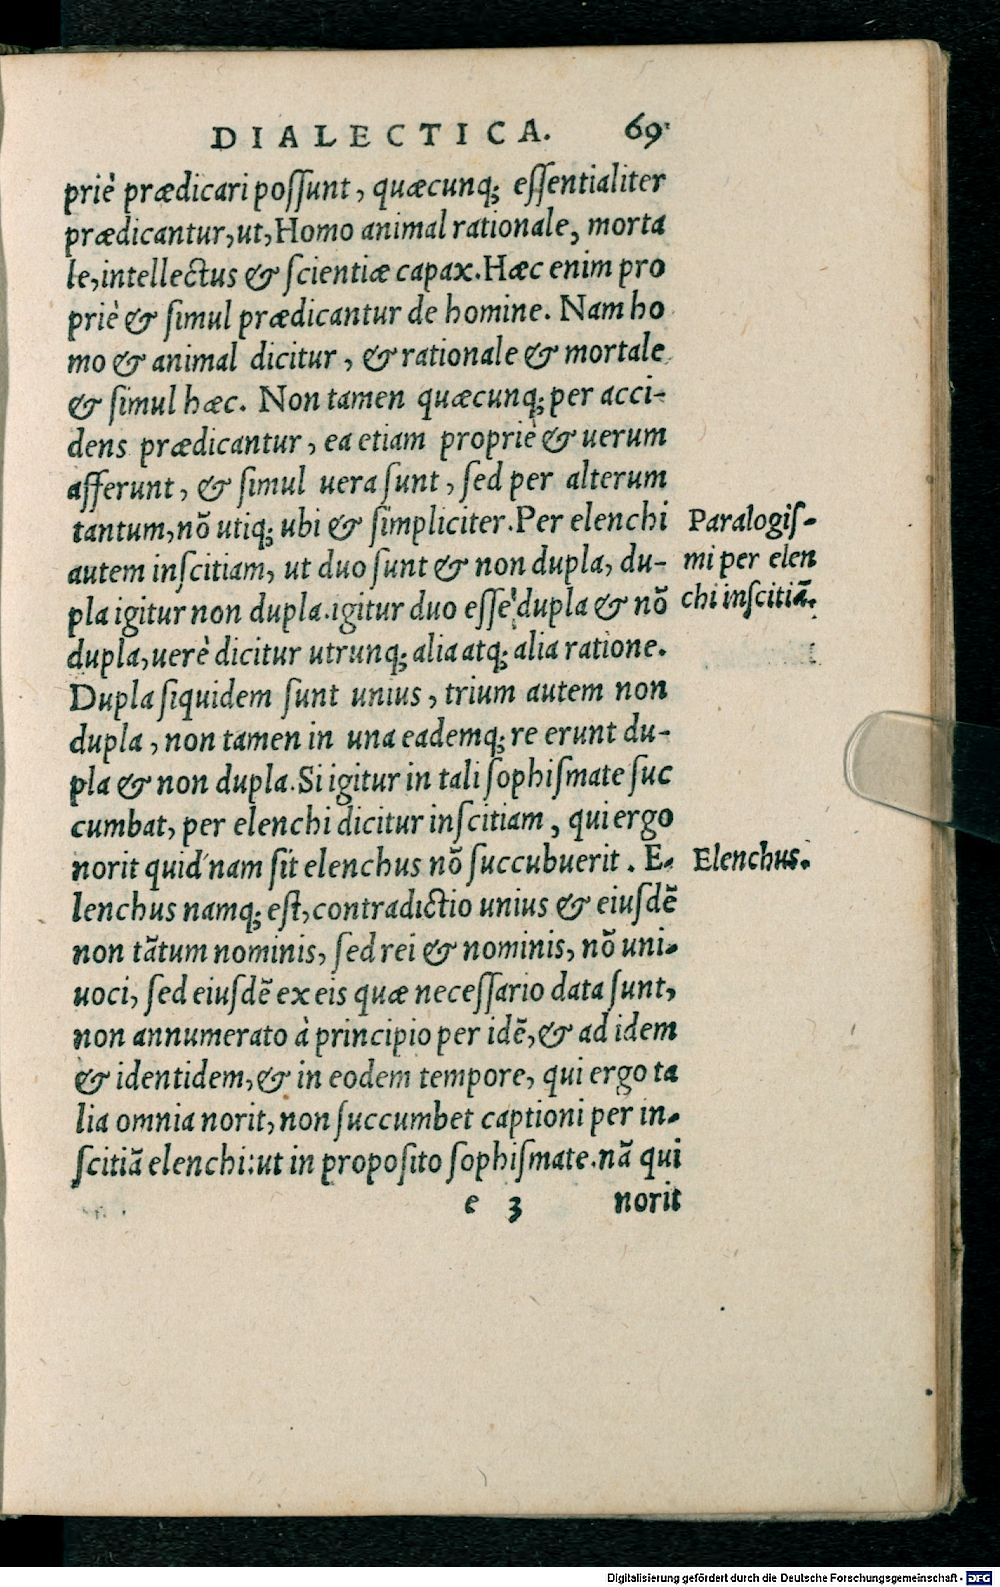 DIALECTICA. 69
priè prædicari possunt, quæcunq; essentialiter
prædicantur, ut, Homo animal rationale, morta
le, intellectus & scientiæ capax. Hæc enim pro
priè & simul prædicantur de homine. Nam ho
mo & animal dicitur, & rationale & mortale
& simul hæc. Non tamen quæcunq; per acci-
dens prædicantur, ea etiam propriè & uerum
afferunt, & simul uera sunt, sed per alterum
tantum, nõ utiq; ubi & simpliciter. Per elenchi
Paralogis-
autem inscitiam, ut duo sunt & non dupla, du-
mi per elen
pla igitur non dupla. igitur duo esse dupla & nõ
chi inscitiã.
dupla, uerè dicitur utrunq; alia atq; alia ratione.
Dupla siquidem sunt unius, trium autem non
dupla, non tamen in una eademq; re erunt du-
pla & non dupla. Si igitur in tali sophismate suc
cumbat, per elenchi dicitur inscitiam, qui ergo
norit quid nam sit elenchus nõ succubuerit. E-
Elenchus.
lenchus namq; est, contradictio unius & eiusdẽ
non tãtum nominis, sed rei & nominis, nõ uni-
uoci, sed eiusdẽ ex eis quæ necessario data sunt,
non annumerato à principio per idẽ, & ad idem
& identidem, & in eodem tempore, qui ergo ta
lia omnia norit, non succumbet captioni per in-
scitiã elenchi: ut in proposito sophismate. nã qui
e 3 norit
Digitalisierung gefördert durch die Deutsche Forschungsgemeinschaft - DFG